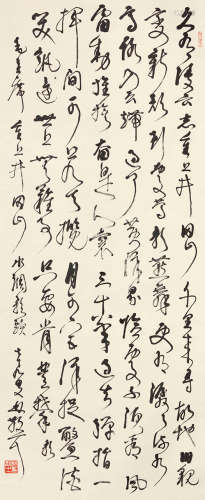 久有凌云志重上井冈山千里来寻故地旧貌
变新颜到处莺歌燕舞更有潺潺流水
高路入云端过了黄洋界险处不须看风
雷动旌旗奋是人寰三十八年过去弹指一
挥间可上九天揽月可下五洋捉鳖谈
笑凯歌还世上无难事只要肯登攀
毛主席重上井冈山水调歌头